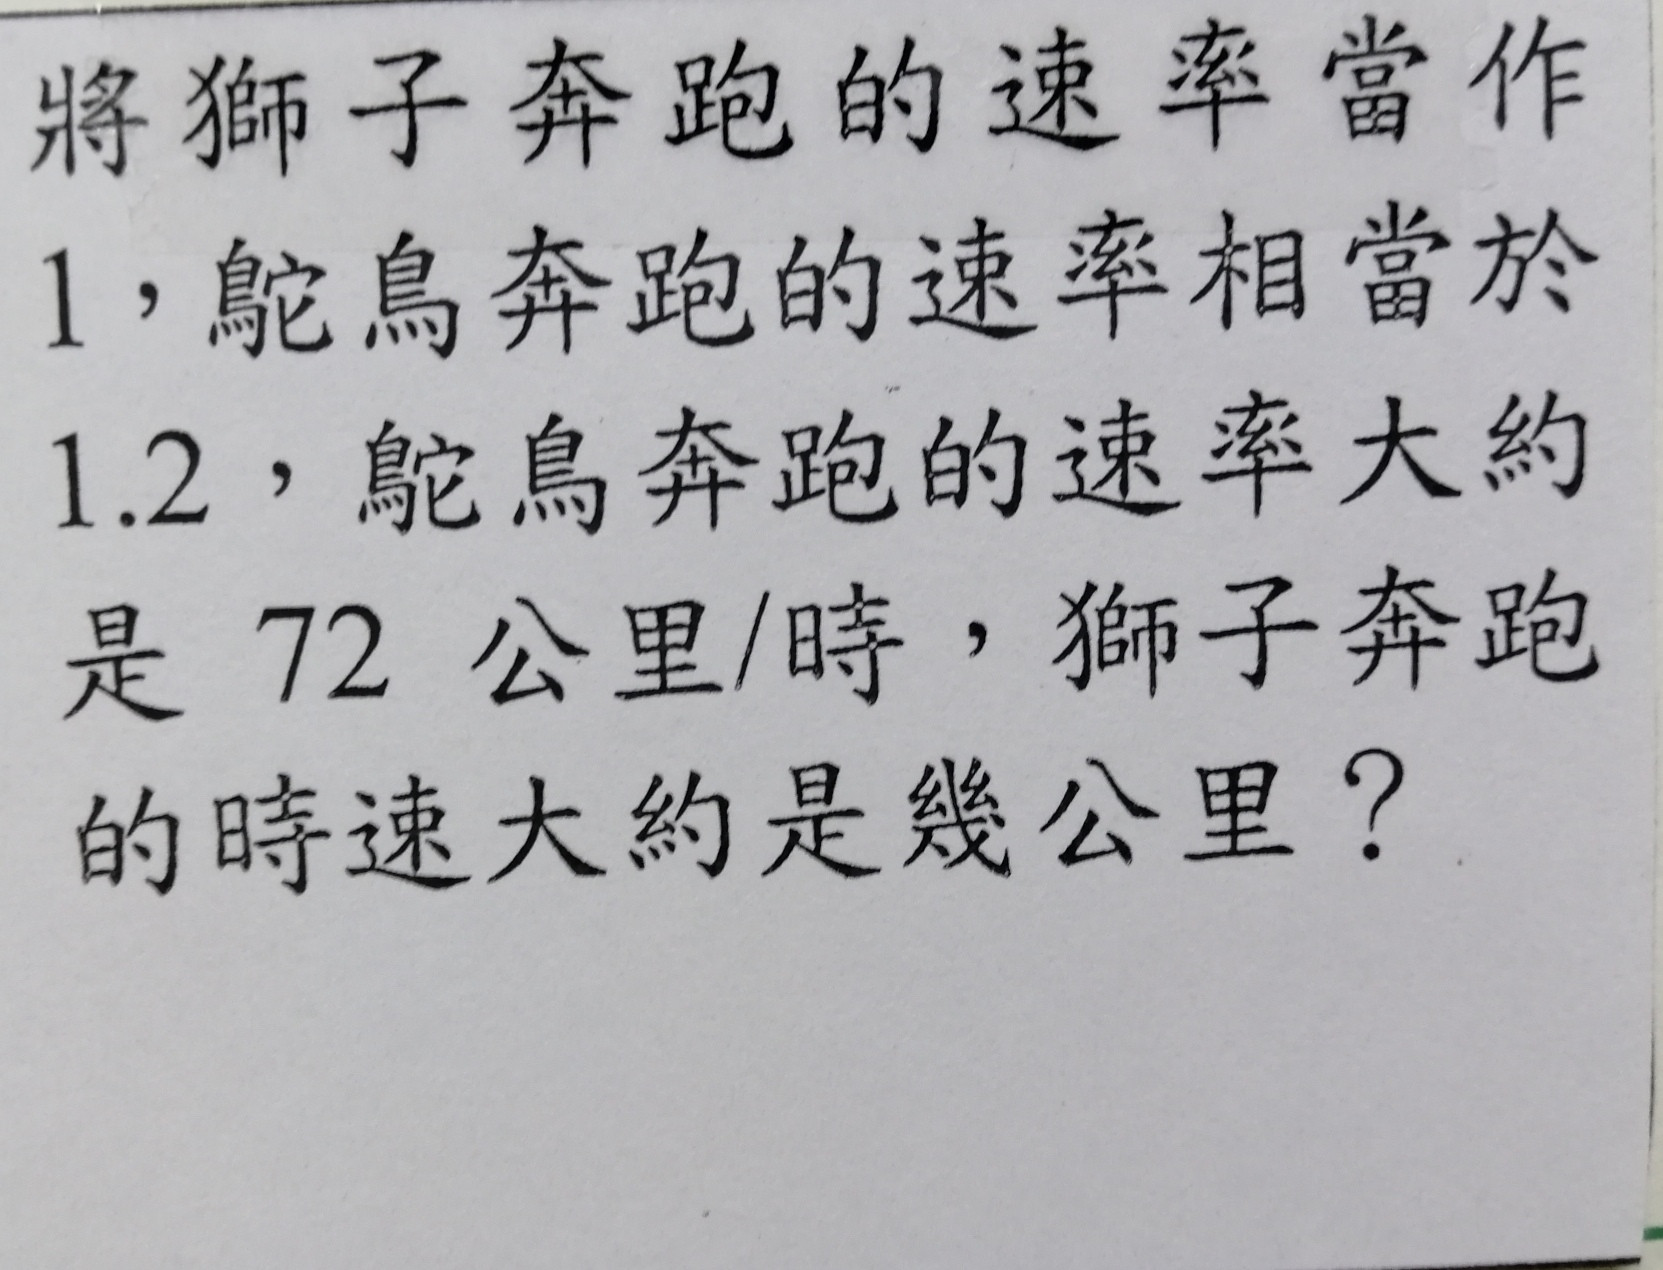 將獅子奔跑的速率當作
1，鴕鳥奔跑的速率相當於
1.2，鴕鳥奔跑的速率大約
是 72 公里/時，獅子奔跑
的時速大約是幾公里？